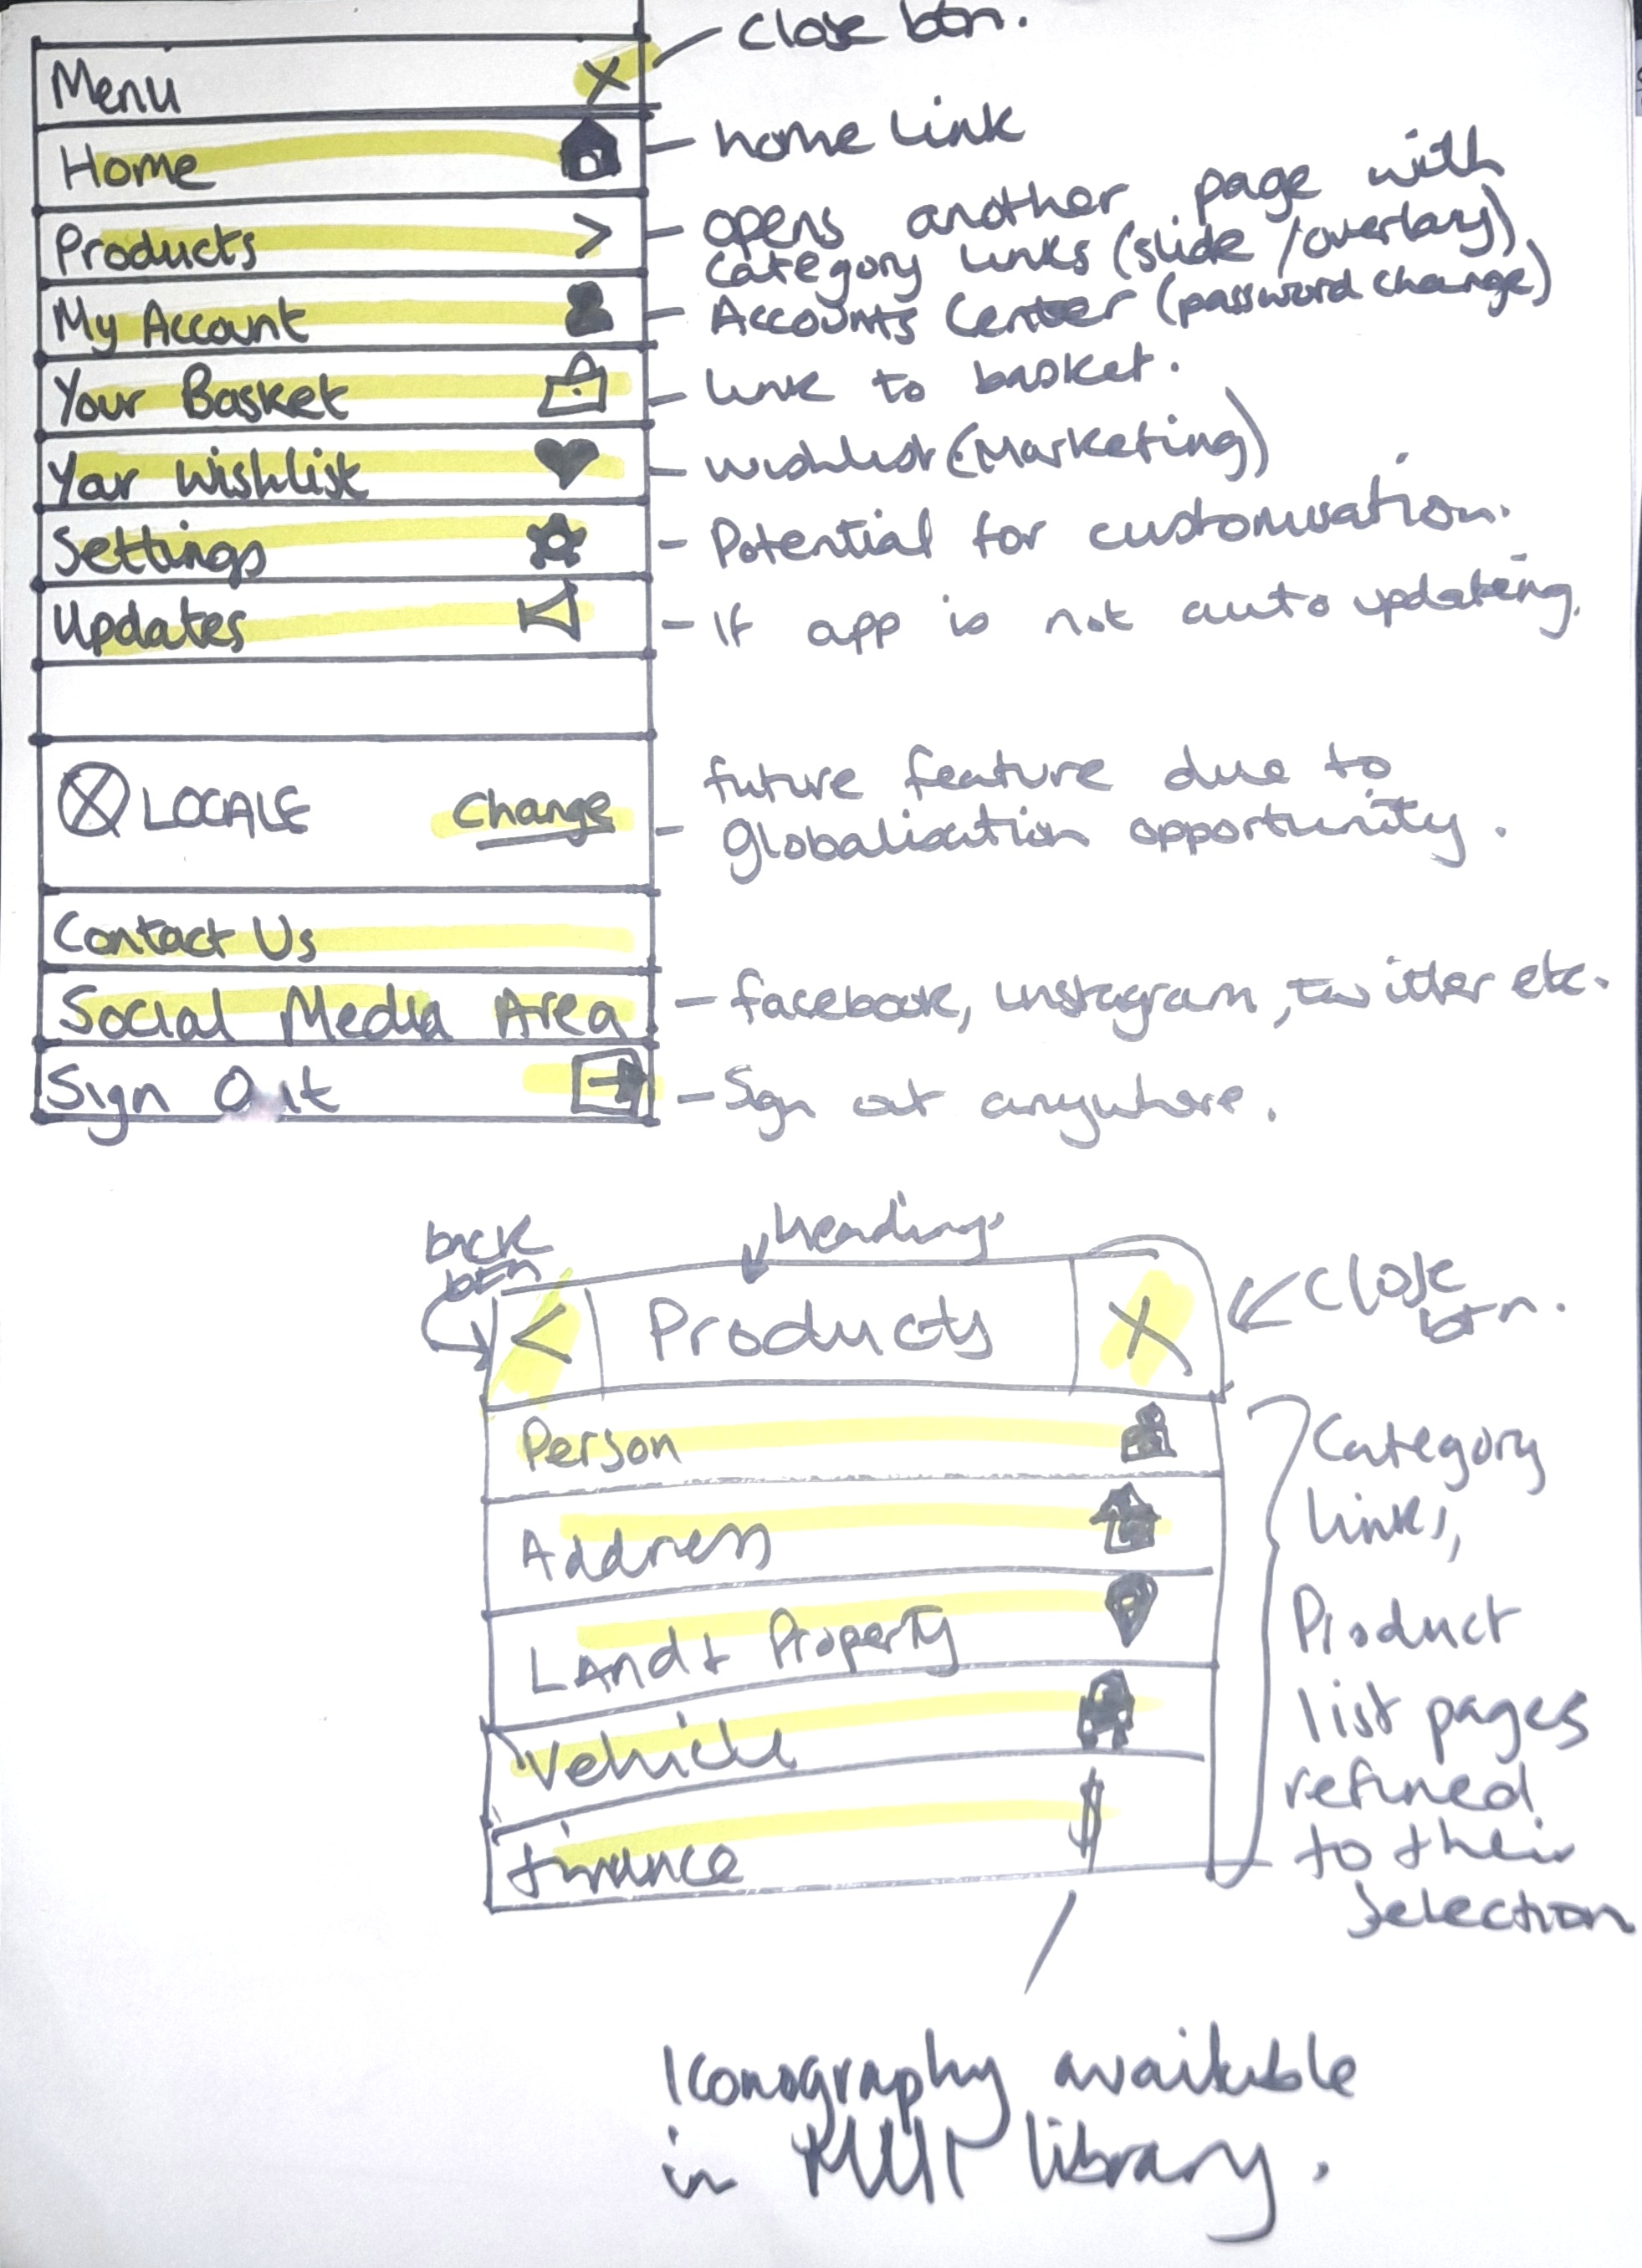 close btn.
Menu X
Home - home link
Products > - opens another page with
category links (slide/overlay)
My Account - Accounts Center (password change)
Your Basket - link to basket.
Your Wishlist - wishlist (Marketing)
Settings - Potential for customisation.
Updates - If app is not auto updating.
LOCALE Change - future feature due to
globalisation opportunity.
Contact Us
Social Media Area - facebook, instagram, twitter etc.
Sign Out - Sign out anywhere.
back
btn
heading
< Products X
close
btn.
Person
Address
Land + Property
Vehicle
finance
$
Category
links,
Product
list pages
refined
to their
selection
Iconography available
in library.